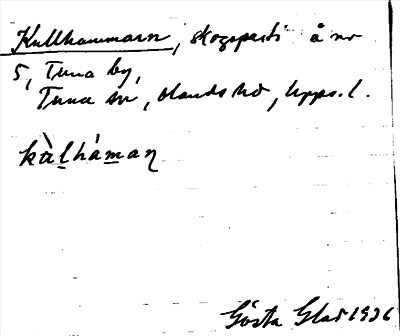 Kullhammarn, skogsparti å nr
5, Tuna by,
Tuna sn, Olands hd, Upps. l.
kàlháman
Gösta Glas 1936